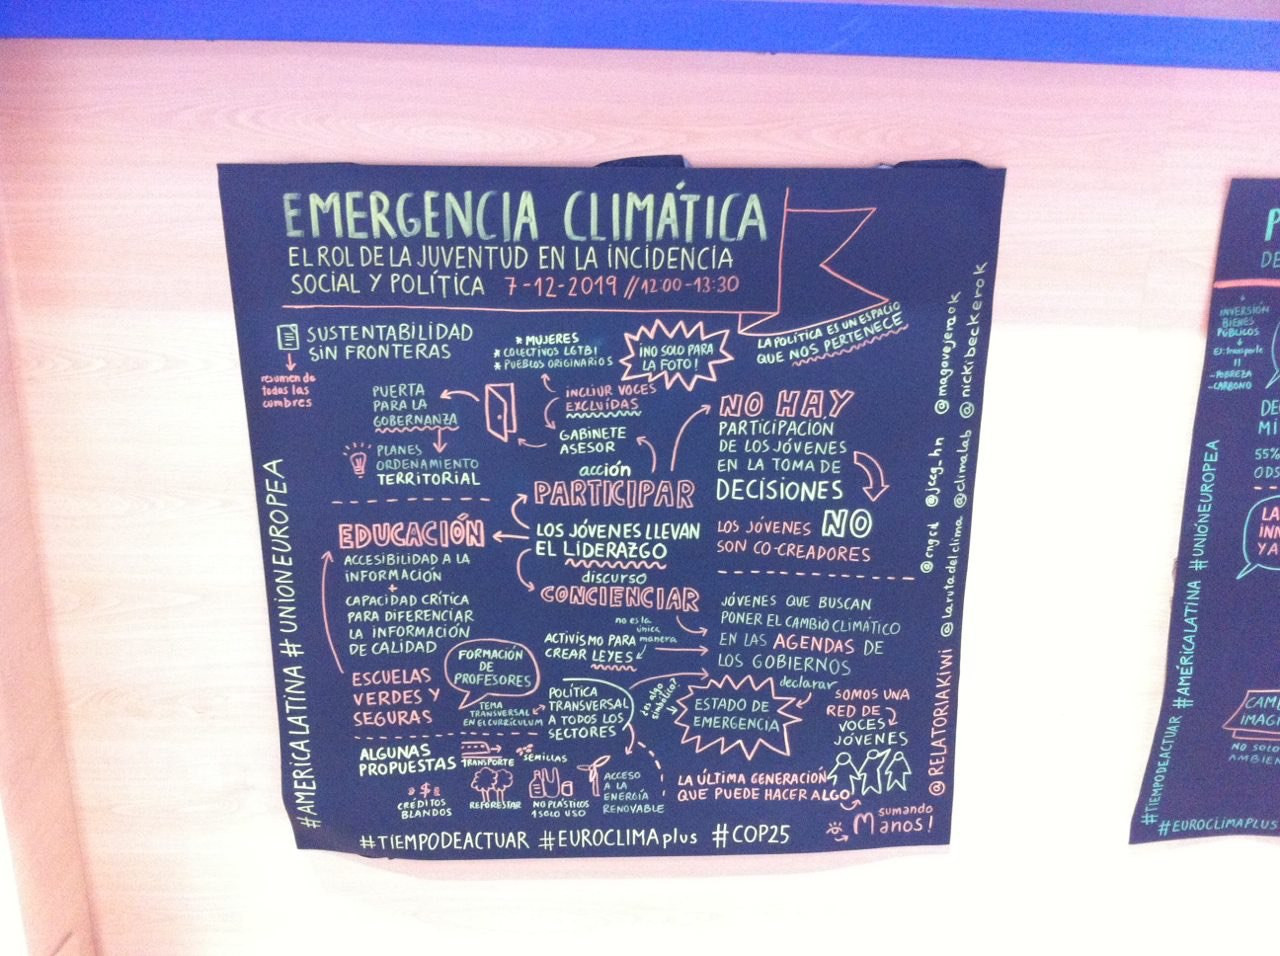 EMERGENCIA CLIMÁTICA
EL ROL DE LA JUVENTUD EN LA INCIDENCIA
SOCIAL Y POLÍTICA 7-12-2019 // 12:00-13:30
SUSTENTABILIDAD
SIN FRONTERAS
resumen de
todas las
cumbres
* MUJERES
* COLECTIVOS LGTBI
* PUEBLOS ORIGINARIOS
¡NO SOLO PARA
LA FOTO!
LA POLÍTICA ES UN ESPACIO
QUE NOS PERTENECE
PUERTA
PARA LA
GOBERNANZA
INCLIUR VOCES
EXCLUÍDAS
GABINETE
ASESOR
PLANES
ORDENAMIENTO
TERRITORIAL
acción
PARTICIPAR
NO HAY
PARTICIPACIÓN
DE LOS JÓVENES
EN LA TOMA DE
DECISIONES
LOS JÓVENES NO
SON CO-CREADORES
LOS JÓVENES LLEVAN
EL LIDERAZGO
EDUCACIÓN
ACCESIBILIDAD A LA
INFORMACIÓN
+
CAPACIDAD CRÍTICA
PARA DIFERENCIAR
LA INFORMACIÓN
DE CALIDAD
ESCUELAS
VERDES Y
SEGURAS
FORMACIÓN
DE
PROFESORES
TEMA
TRANSVERSAL
EN EL CURRÍCULUM
discurso
CONCIENCIAR
no es la
única
manera
ACTIVISMO PARA
CREAR LEYES
POLÍTICA
TRANSVERSAL
A TODOS LOS
SECTORES
JÓVENES QUE BUSCAN
PONER EL CAMBIO CLIMÁTICO
EN LAS AGENDAS DE
LOS GOBIERNOS
declarar
¿es algo
simbólico?
ESTADO DE
EMERGENCIA
SOMOS UNA
RED DE
VOCES
JÓVENES
ALGUNAS
PROPUESTAS
TRANSPORTE
SEMILLAS
CRÉDITOS
BLANDOS
REFORESTAR
NO PLÁSTICOS
1 SOLO USO
ACCESO
A LA
ENERGÍA
RENOVABLE
LA ÚLTIMA GENERACIÓN
QUE PUEDE HACER ALGO
sumando
Manos!
#TIEMPODEACTUAR #EUROCLIMAplus #COP25
#AMERICALATINA #UNIONEUROPEA
@magovejerook
@jccg_hn
@cngrd
@nickibeckerok
@climalab
@larutadelclima
@RELATORIAKIWI
DE
INVERSIÓN
BIENES
PÚBLICOS
Ej: transporte
-POBREZA
-CARBONO
DE
MI
55%
ODS
LA
INN
Y A
CAM
IMAG
NO SOLO
AMBIEN
#TIEMPODEACTUAR #AMÉRICALATINA #UNIÓNEUROPEA
#EUROCLIMAPLUS